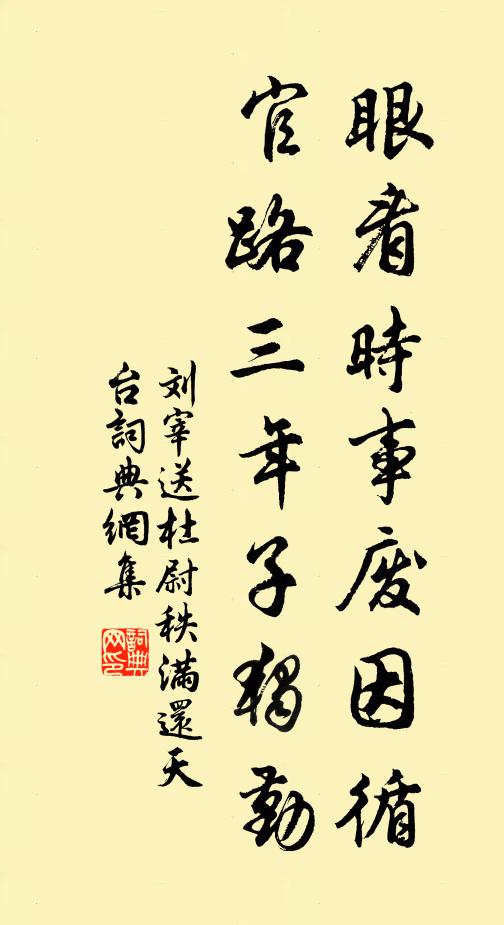 眼看時事废因循
官路三年子獨勤
刘宰送杜尉秩满還天
台詞典網集
詞典
网印